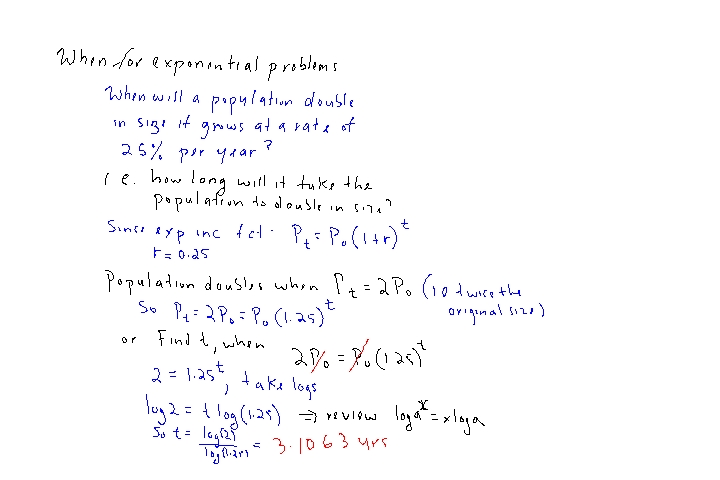 When for exponential problems
When will a population double
in size if grows at a rate of
25% per year?
i.e. how long will it take the
population to double in size?
Since exp inc fct. Pₜ = P₀(1+r)ᵗ
r = 0.25
Population doubles when Pₜ = 2P₀ (ie twice the
original size)
So Pₜ = 2P₀ = P₀(1.25)ᵗ
or Find t, when 2P₀ = P₀(1.25)ᵗ
2 = 1.25ᵗ, take logs
log 2 = t log(1.25) ⇒ review log aˣ = x log a
So t = log(2) / log(1.25) = 3.1063 yrs